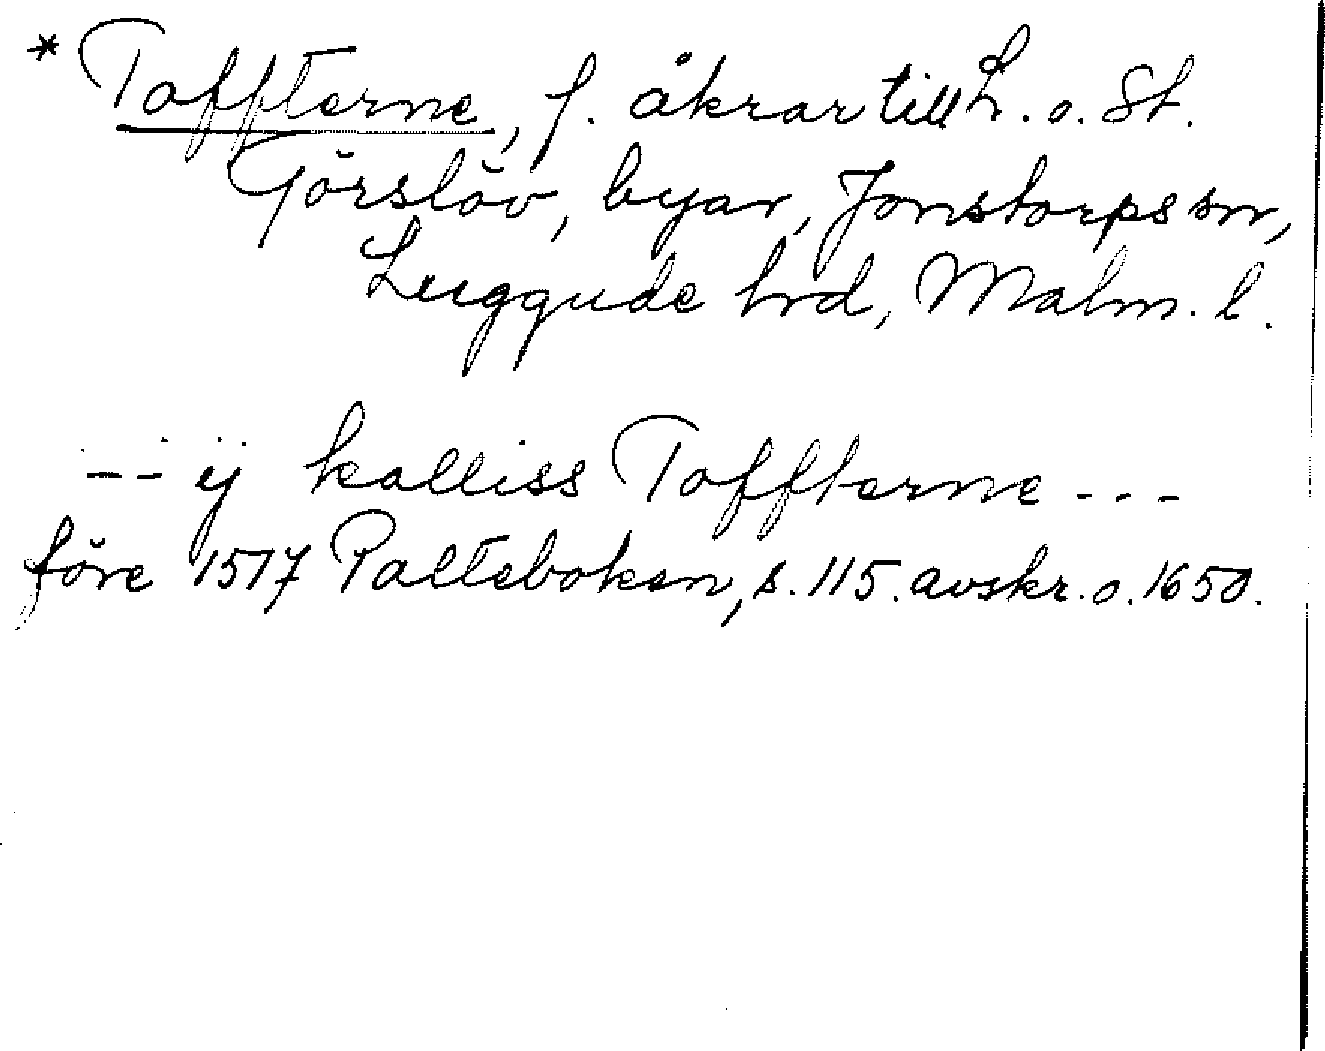 * Toffterne, f. åkrar till L. o. St.
Görslöv, byar, Jonstorps sn,
Luggude hrd, Malm. l.
--- ij kalliss Toffterne ---
före 1517 Palteboken, s. 115. avskr. o. 1650.